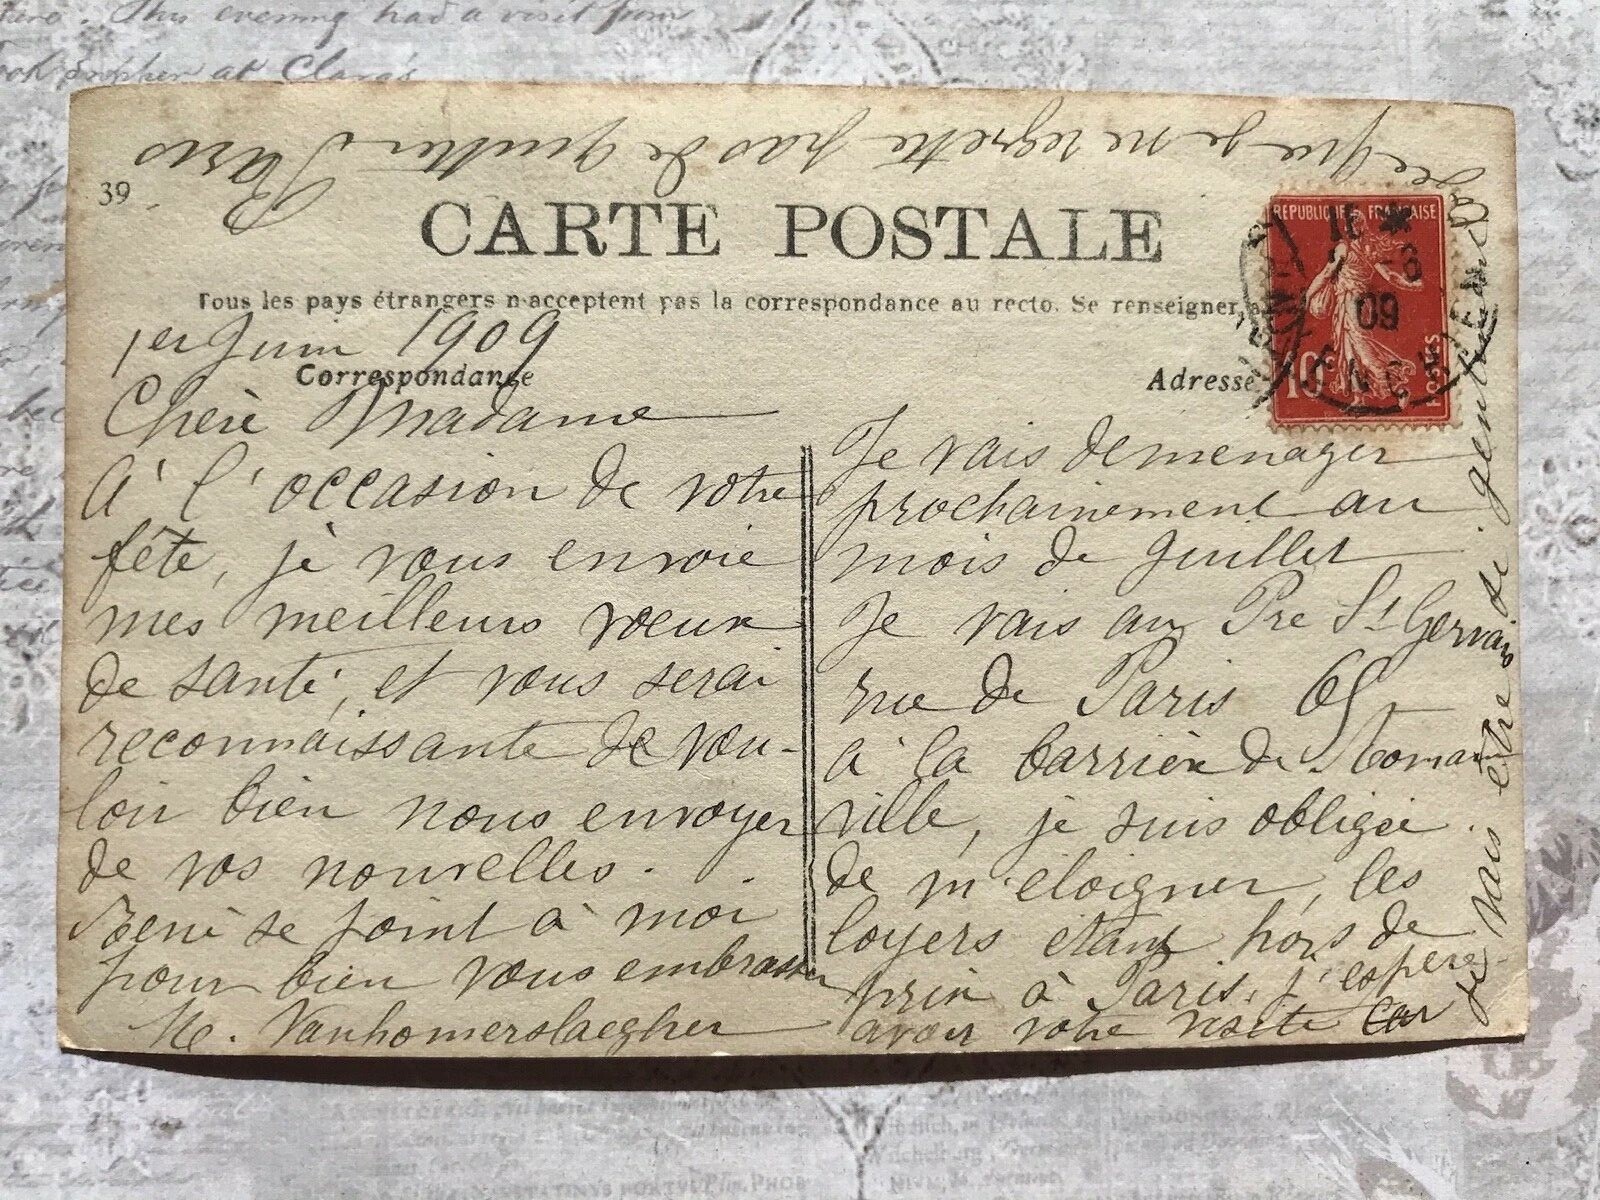 39
CARTE POSTALE
Tous les pays étrangers n'acceptent pas la correspondance au recto. Se renseigner
Correspondance
Adresse
REPUBLIQUE FRANÇAISE
10
09
1er Juin 1909
Chère Madame
A l'occasion de votre
fête, je vous envoie
mes meilleurs voeux
de santé, et vous serai
reconnaissante de vou-
loir bien nous envoyer
de vos nouvelles.
René se joint à moi
pour bien vous embrasser
Vanhomerslaegher
Je vais demenager
prochainement au
mois de Juillet
Je vais au Pre St Gervais
rue de Paris 65
à la barrière de Romain
ville, je suis obligée
de m'éloigner, les
loyers étant hors de
prix à Paris. j'espère
avoir votre visite car
je vais être si gentiment
que je ne regrette pas de quitter
Paris
This evening had a visit from
at Clara's